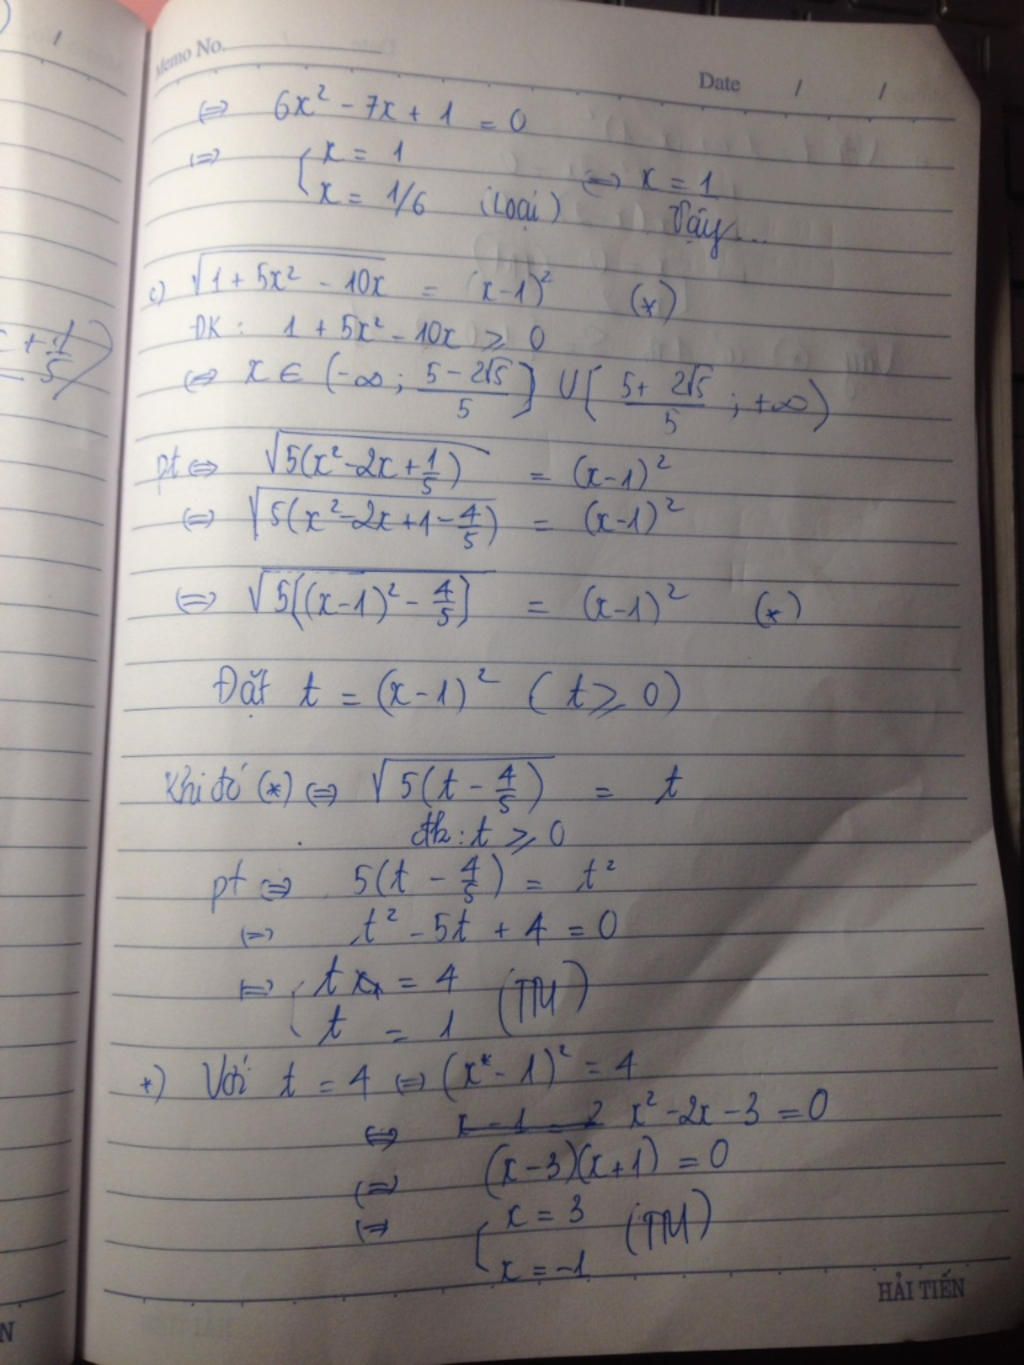 Memo No.
Date / /
⇔ 6x² - 7x + 1 = 0
⇔ [ x = 1
x = 1/6 (Loại) ⇔ x = 1
Vậy...
c) √(1 + 5x² - 10x) = (x-1)² (*)
ĐK: 1 + 5x² - 10x ≥ 0
⇔ x ∈ (-∞; (5 - 2√5)/5] ∪ [(5 + 2√5)/5; +∞)
pt ⇔ √(5(x² - 2x + 1/5)) = (x-1)²
⇔ √(5(x² - 2x + 1 - 4/5)) = (x-1)²
⇔ √(5[(x-1)² - 4/5]) = (x-1)² (*)
Đặt t = (x-1)² (t ≥ 0)
Khi đó (*) ⇔ √(5(t - 4/5)) = t
đk: t ≥ 0
pt ⇔ 5(t - 4/5) = t²
⇔ t² - 5t + 4 = 0
⇔ [ t = 4
t = 1 (TM)
*) Với t = 4 ⇔ (x - 1)² = 4
⇔ x² - 2x - 3 = 0
⇔ (x-3)(x+1) = 0
⇔ [ x = 3
x = -1 (TM)
HẢI TIẾN